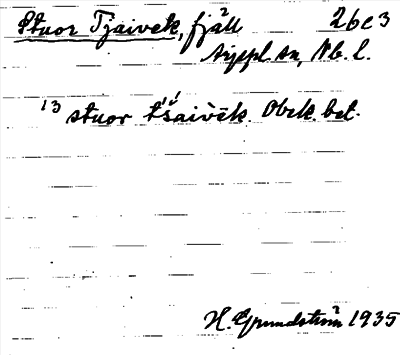 Stuor Tjaivek, fjäll 26c3
Arjepl. sn, Nb. l.
13 stuor tš́aivēk. Obek. bet.
H. Grundström 1935